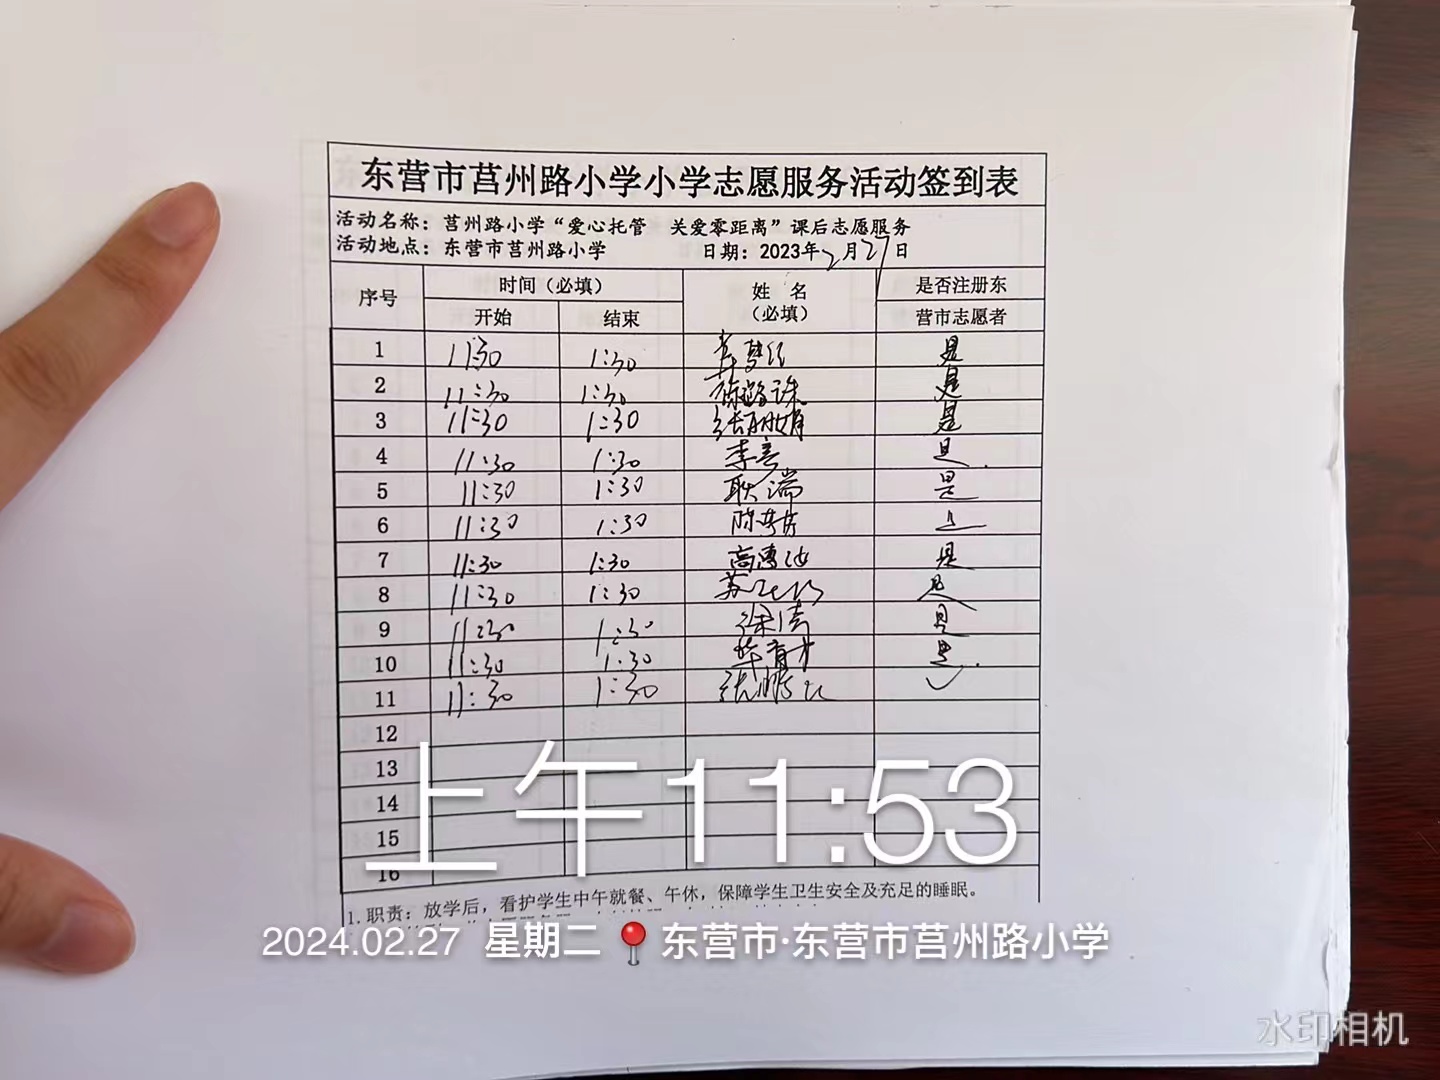 东营市莒州路小学小学志愿服务活动签到表
活动名称：莒州路小学“爱心托管 关爱零距离”课后志愿服务
活动地点：东营市莒州路小学 日期：2023年2月27日
序号 时间（必填） 姓 名（必填） 是否注册东营市志愿者
开始 结束
1 11:30 1:30 是
2 11:30 1:30 是
3 11:30 1:30 张丽娟 是
4 11:30 1:30 李 是
5 11:30 1:30 耿瑞 是
6 11:30 1:30 陈
7 11:30 1:30 高 是
8 11:30 1:30 苏 是
9 11:30 1:30 徐倩 是
10 11:30 1:30 华育才 是
11 11:30 1:30 张鹏飞 ✓
12
13
14
15
16
上午11:53
1. 职责：放学后，看护学生中午就餐、午休，保障学生卫生安全及充足的睡眠。
2024.02.27 星期二 📍东营市·东营市莒州路小学
水印相机